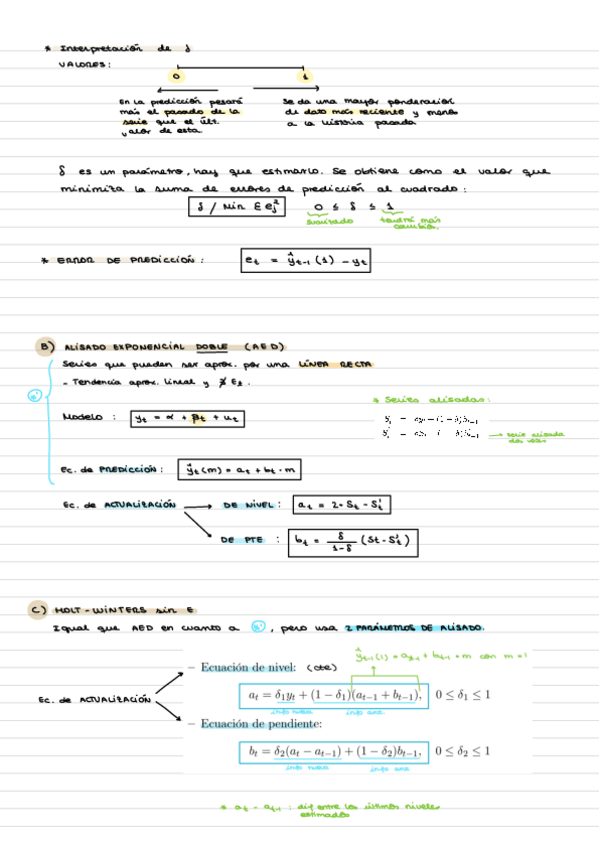 * Interpretación de δ
VALORES:
0 1
En la predicción pesará
más el pasado de la
serie que el últ.
valor de esta.
Se da una mayor ponderación
al dato más reciente y menos
a la historia pasada
δ es un parámetro, hay que estimarlo. Se obtiene como el valor que
minimiza la suma de errores de predicción al cuadrado:
δ / Min Σ e²ⱼ 0 ≤ δ ≤ 1
suavizado tendrá más
cambios.
* ERROR DE PREDICCIÓN: eₜ = ŷₜ₋₁(1) - yₜ
B) ALISADO EXPONENCIAL DOBLE (AED)
Series que pueden ser aprox. por una LÍNEA RECTA
- Tendencia aprox. lineal y ∄ Eₜ.
Modelo: yₜ = α + βt + uₜ
* Series alisadas:
serie alisada
dos veces
Ec. de PREDICCIÓN: ŷₜ(m) = aₜ + bₜ · m
Ec. de ACTUALIZACIÓN DE NIVEL: aₜ = 2·Sₜ - S'ₜ
DE PTE: bₜ = δ/(1-δ) (Sₜ - S'ₜ)
C) HOLT-WINTERS sin E
Igual que AED en cuanto a, pero usa 2 PARÁMETROS DE ALISADO.
ŷₜ₋₁(1) = aₜ₋₁ + bₜ₋₁ · m con m = 1
– Ecuación de nivel: (cte)
Ec. de ACTUALIZACIÓN
aₜ = δ₁yₜ + (1 − δ₁)(aₜ₋₁ + bₜ₋₁), 0 ≤ δ₁ ≤ 1
info nueva info ant
– Ecuación de pendiente:
bₜ = δ₂(aₜ − aₜ₋₁) + (1 − δ₂)bₜ₋₁, 0 ≤ δ₂ ≤ 1
info nueva info ant
* aₜ - aₜ₋₁: dif entre los últimos niveles
estimados